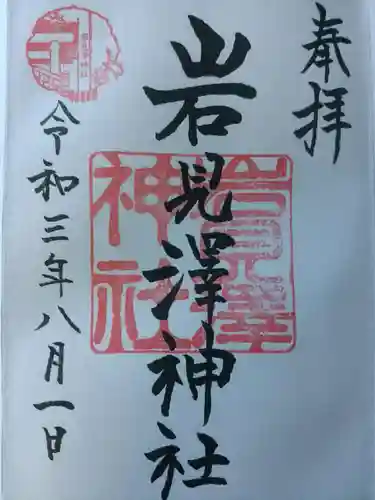 奉拝
岩見澤神社
岩見澤神社
令和三年八月一日